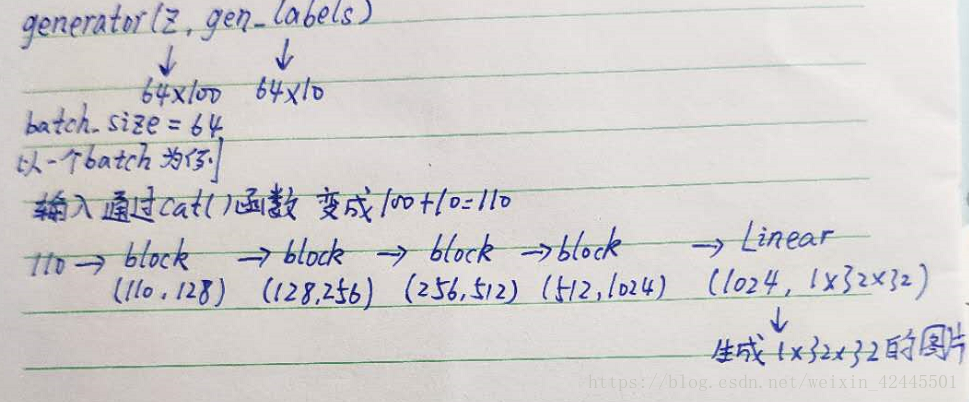 generator(z, gen_labels)
↓ ↓
64×100 64×10
batch_size = 64
以一个batch为例
输入通过cat()函数 变成100+10=110
110 → block → block → block → block → Linear
(110,128) (128,256) (256,512) (512,1024) (1024, 1×32×32)
↓
生成1×32×32的图片
https://blog.csdn.net/weixin_42445501